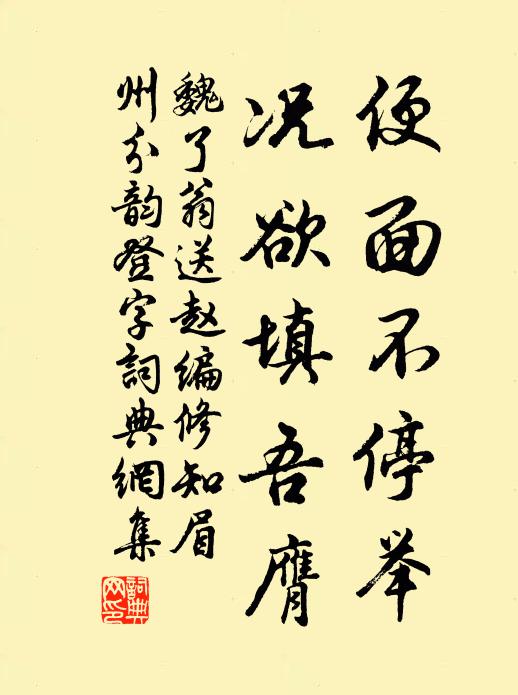 便面不停举
况欲填吾膺
魏了翁送赵编修知眉
州分韵登字詞典網集
詞典网印